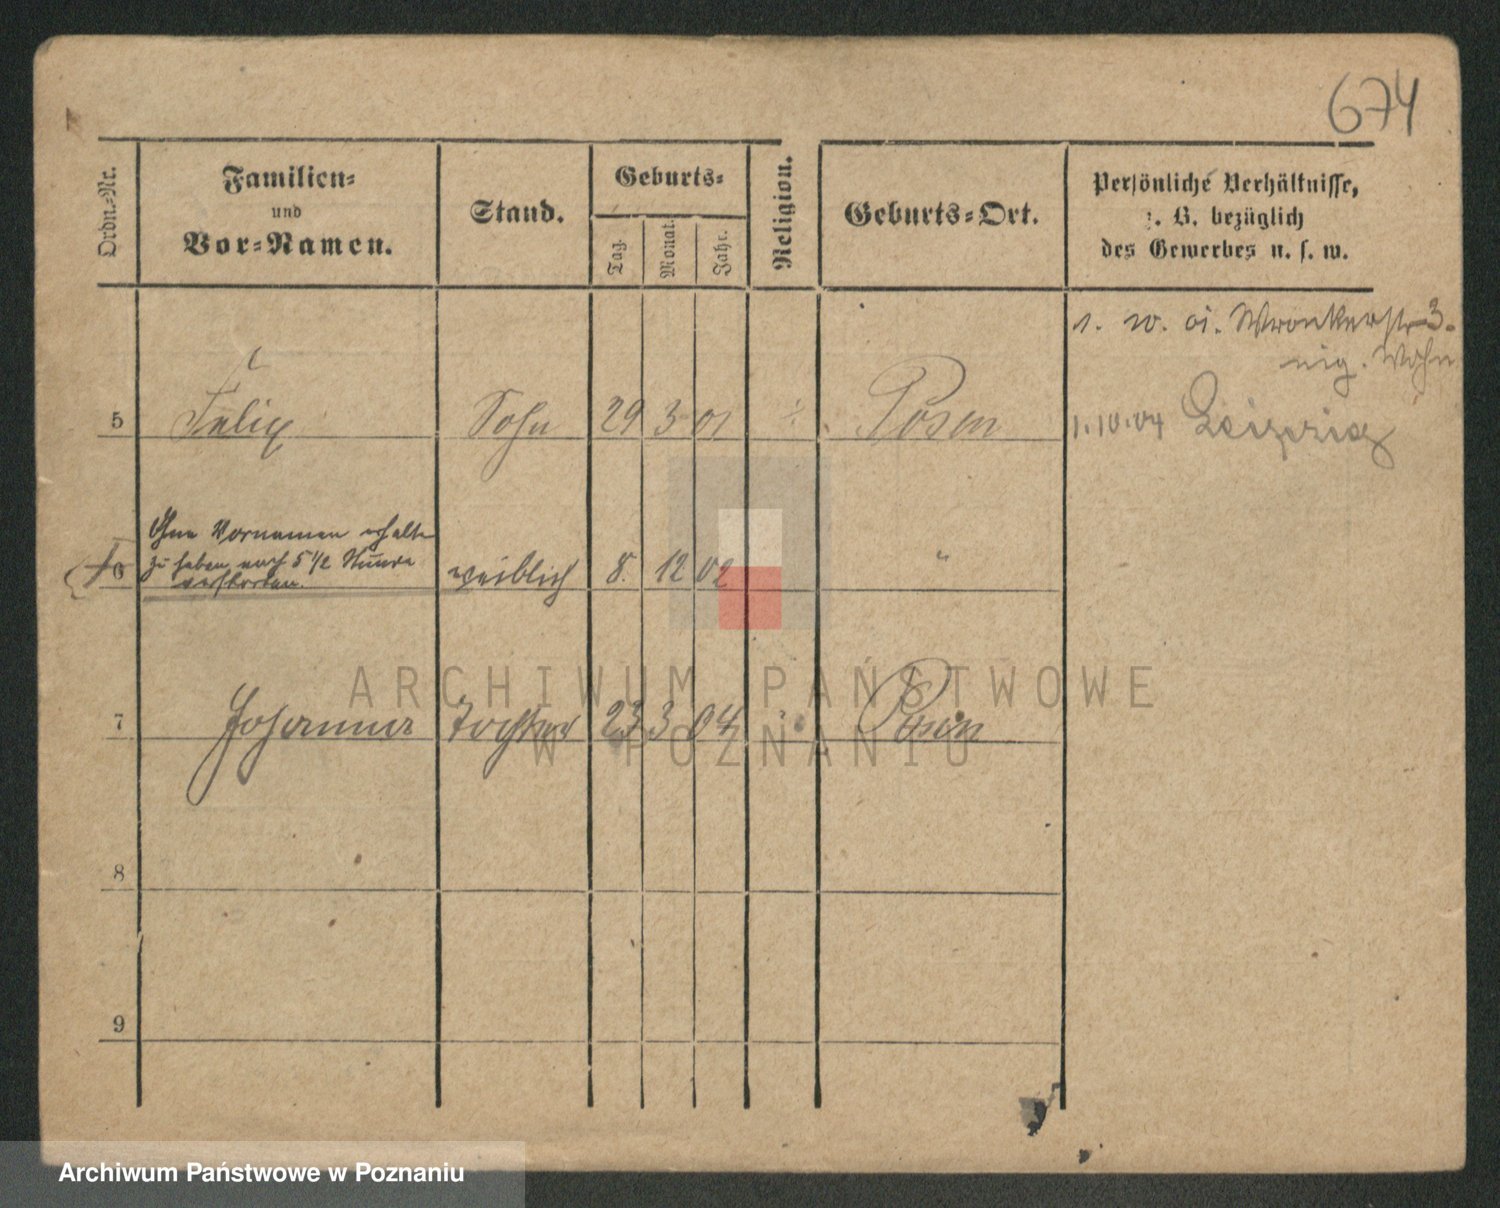 674
Ordn.-Nr.
Familien-
und
Vor-Namen.
Stand.
Geburts-
Tag.
Monat.
Jahr.
Religion.
Geburts-Ort.
Persönliche Verhältnisse,
z. B. bezüglich
des Gewerbes u. s. w.
1. 10. 01. Wronkerstr 3.
eig. Wohn
5 Felix Sohn 29 3 01 Posen 1.10.04 Leipzig
Ohne Vornamen erhalten
zu haben nach 5 1/2 Stunde
verstorben.
6 weiblich 8. 12 02 "
ARCHIWUM PAŃSTWOWE
W POZNANIU
7 Johanna Tochter 23 3 04 Posen
8
9
Archiwum Państwowe w Poznaniu